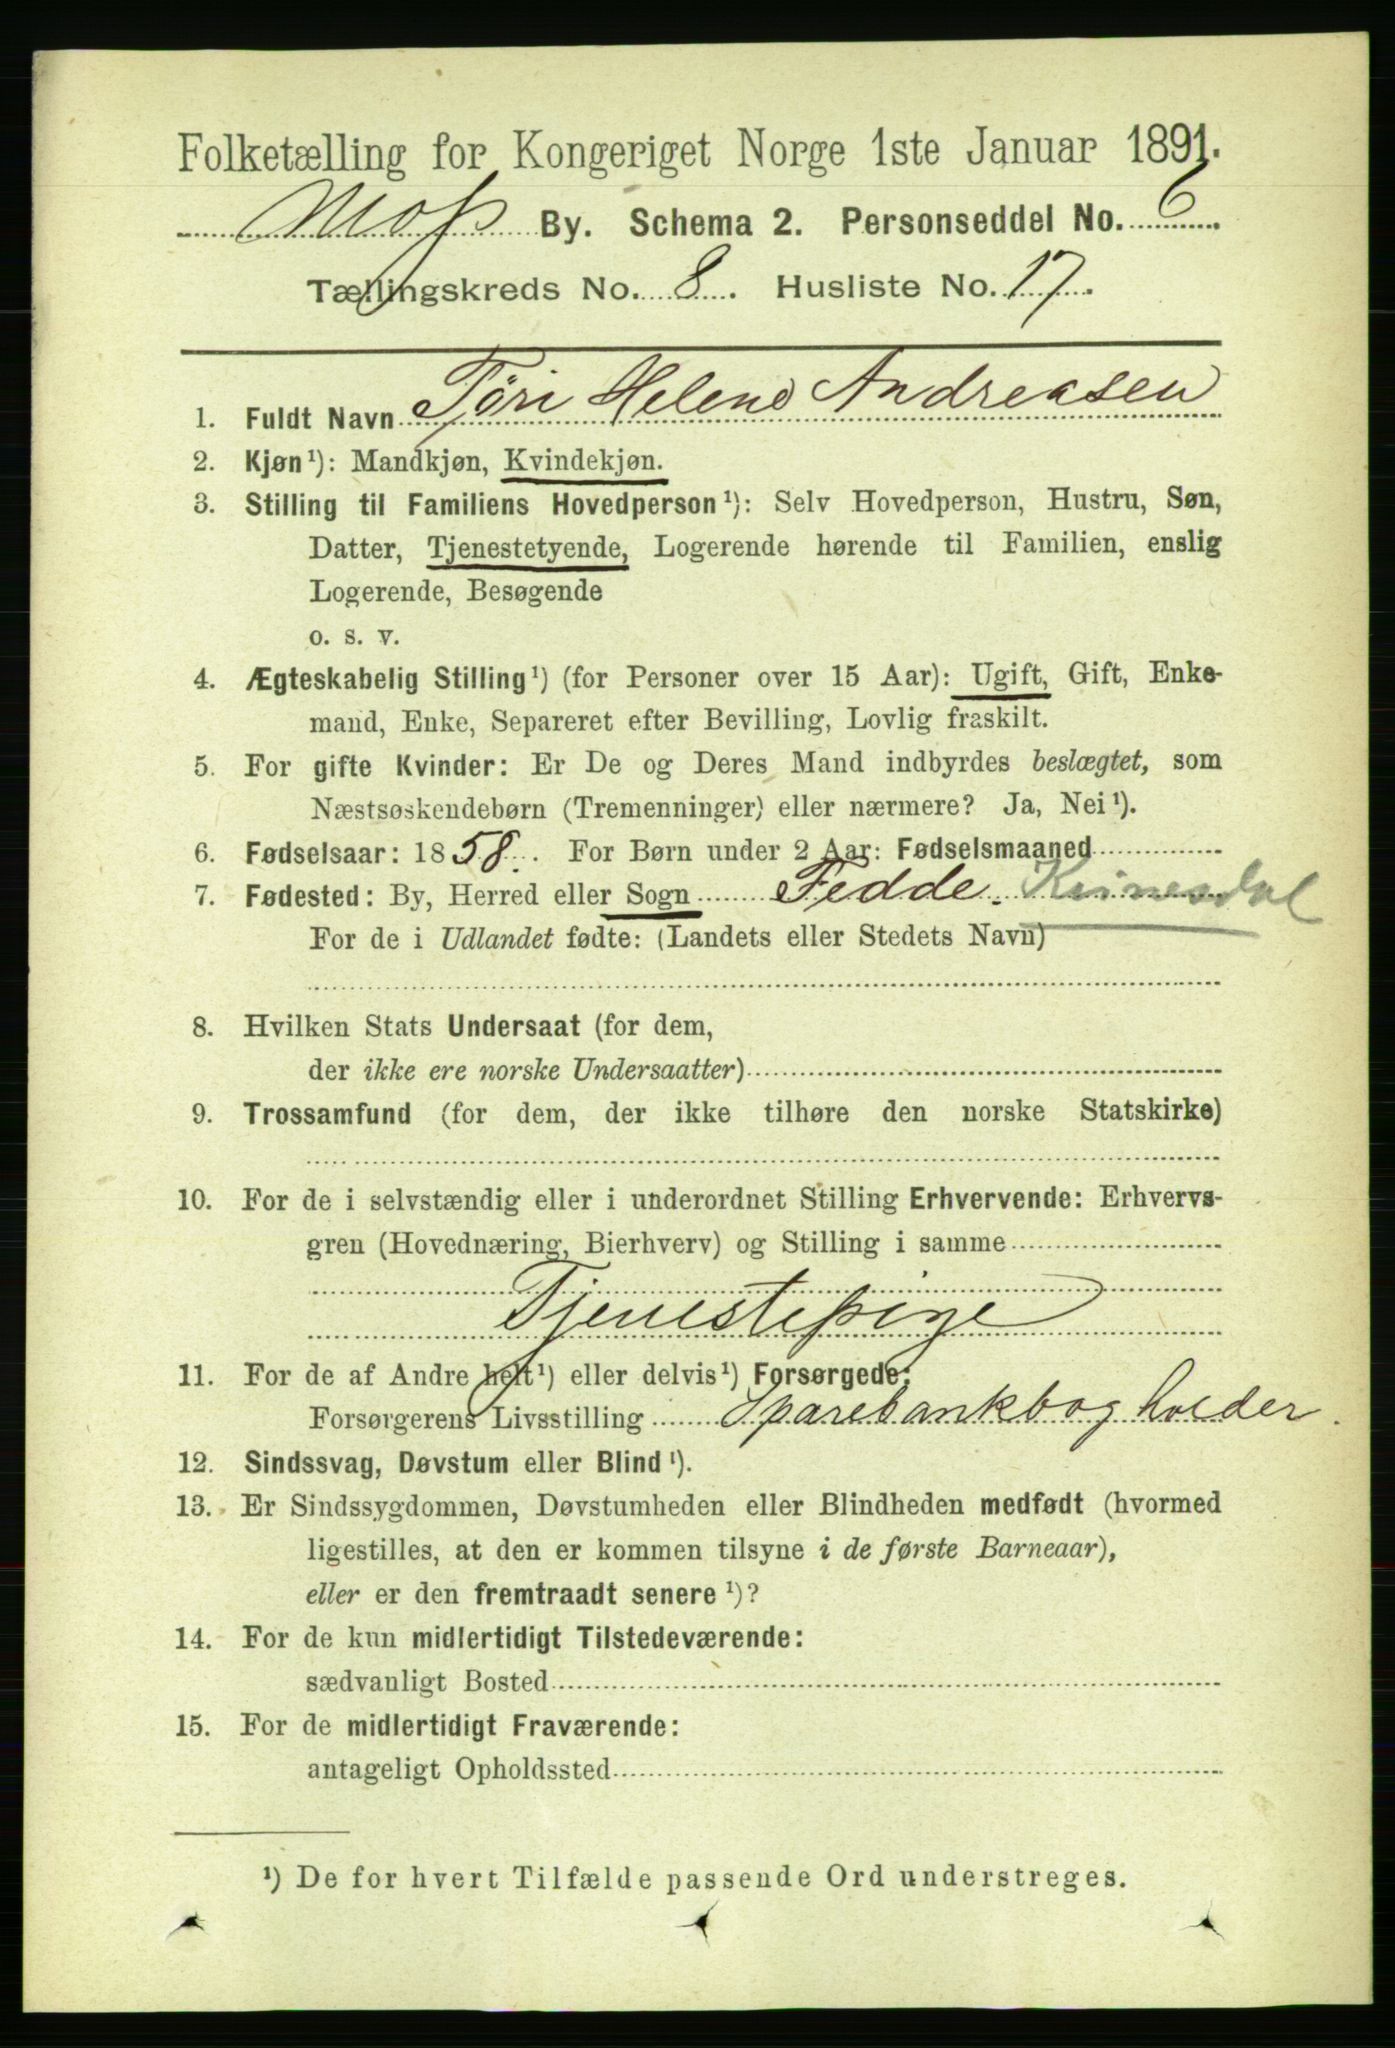 Folketælling for Kongeriget Norge 1ste Januar 1891.
Moss By. Schema 2. Personseddel No. 6.
Tællingskreds No. 8. Husliste No. 17.
1. Fuldt Navn Tøri Helene Andreasen
2. Kjøn¹): Mandkjøn, Kvindekjøn.
3. Stilling til Familiens Hovedperson¹): Selv Hovedperson, Hustru, Søn,
Datter, Tjenestetyende, Logerende hørende til Familien, enslig
Logerende, Besøgende
o. s. v.
4. Ægteskabelig Stilling¹) (for Personer over 15 Aar): Ugift, Gift, Enke-
mand, Enke, Separeret efter Bevilling, Lovlig fraskilt.
5. For gifte Kvinder: Er De og Deres Mand indbyrdes beslægtet, som
Næstsøskendebørn (Tremenninger) eller nærmere? Ja, Nei¹).
6. Fødselsaar: 1858. For Børn under 2 Aar: Fødselsmaaned
7. Fødested: By, Herred eller Sogn Fedde. Kvinesdal
For de i Udlandet fødte: (Landets eller Stedets Navn)
8. Hvilken Stats Undersaat (for dem,
der ikke ere norske Undersaatter)
9. Trossamfund (for dem, der ikke tilhøre den norske Statskirke)
10. For de i selvstændig eller i underordnet Stilling Erhvervende: Erhvervs-
gren (Hovednæring, Bierhverv) og Stilling i samme
Tjenestepige
11. For de af Andre helt¹) eller delvis¹) Forsørgede:
Forsørgerens Livsstilling Sparebankbogholder.
12. Sindssvag, Døvstum eller Blind¹).
13. Er Sindssygdommen, Døvstumheden eller Blindheden medfødt (hvormed
ligestilles, at den er kommen tilsyne i de første Barneaar),
eller er den fremtraadt senere¹)?
14. For de kun midlertidigt Tilstedeværende:
sædvanligt Bosted
15. For de midlertidigt Fraværende:
antageligt Opholdssted
¹) De for hvert Tilfælde passende Ord understreges.